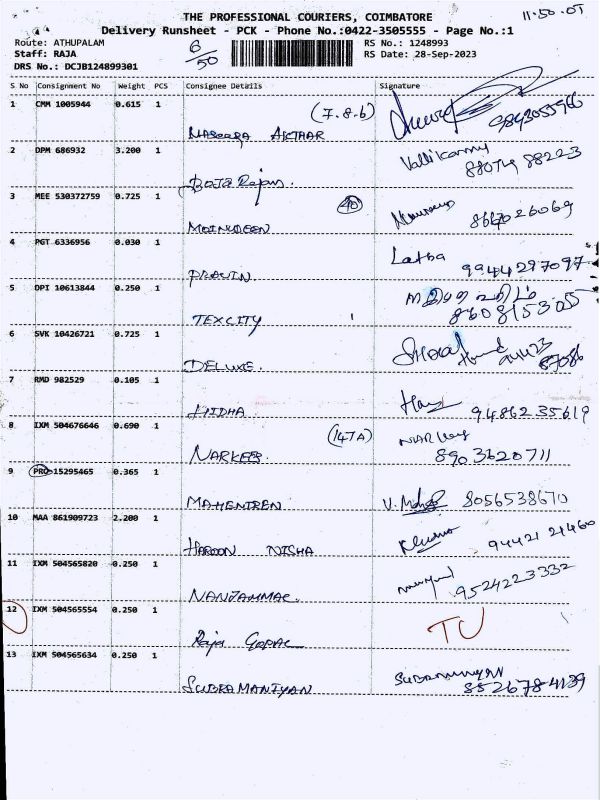 THE PROFESSIONAL COURIERS, COIMBATORE
11-50.
Delivery Runsheet - PCK - Phone No.:0422-3505555 - Page No.:1
Route: ATHUPALAM
6/50
RS No.: 1248993
Staff: RAJA
RS Date: 28-Sep-2023
DRS No.: DCJB124899301
S No Consignment No Weight PCS Consignee Details Signature
1 CMM 1005944 0.615 1
(7.8.b)
NASEERA AKTHAR
9843055966
2 DPM 686932 3.200 1
Vallikanny
88074 88223
BOJARajan.
3 MEE 530372759 0.725 1
40
8667026069
MOINUDEEN
4 PGT 6336956 0.030 1
Latha
9944297097
PRAVIN
5 DPI 10613844 0.250 1
860815305
TEXCITY
6 SVK 10426721 0.725 1
DELUXE.
7 RMD 982529 0.105 1
9486235619
8 IXM 504676646 0.690 1
(147A)
NARKEES
8903620711
9 PRO 15295465 0.365 1
V. 8056538670
MAHENTREN
10 MAA 861909723 2.200 1
94421 21460
HAROON NISHA
11 IXM 504565820 0.250 1
9524223332
NANJAMMAL.
12 IXM 504565554 0.250 1
TU
Raja GOPAL
13 IXM 504565634 0.250 1
SUBRAMANIYAN
8526784139